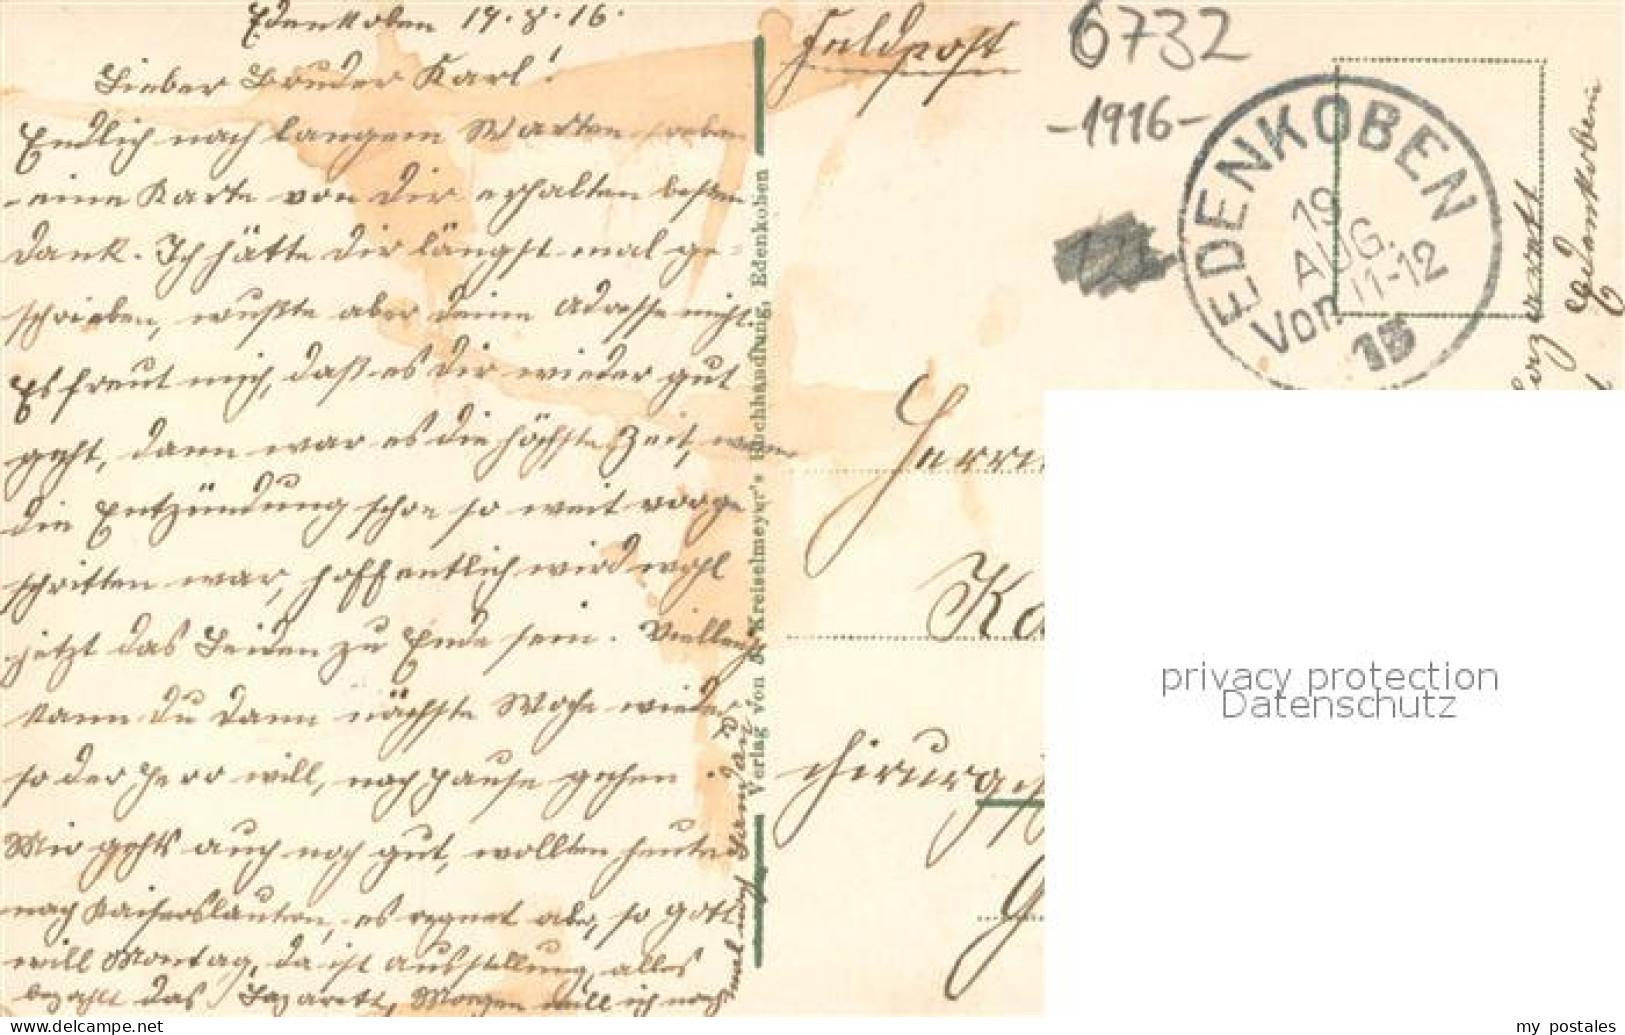 Edenkoben 19.8.16.
Lieber Bruder Karl!
Endlich nach langem Warten soeben
eine Karte von Dir erhalten besten
Dank. Ich hätte Dir längst mal ge-
schrieben, wußte aber Deine Adresse nicht.
Es freut mich, daß es Dir wieder gut
geht, dann war es die höchste Zeit, wenn
die Entzündung schon so weit vorge
schritten war, hoffentlich wird wohl
jetzt das Leiden zu Ende sein. Vielleicht
kann Du dann nächste Woche wieder
so der Herr will, nach Hause gehen.
Mir gehts auch noch gut, wollten heute
nach Kaiserslautern, es regnet aber, so Gott
will Montag, da ist Ausstellung, alles
bezahlt das Lazarett, Morgen will ich noch
mal nach
Verlag von J. Kreiselmeyer's Buchhandlung, Edenkoben
Feldpost
6732
-1916-
EDENKOBEN
19
AUG.
Von 11-12
15
Edenkoben
Herrn
Ka
chirurgisch
G
privacy protection
Datenschutz
www.delcampe.net
my_postales